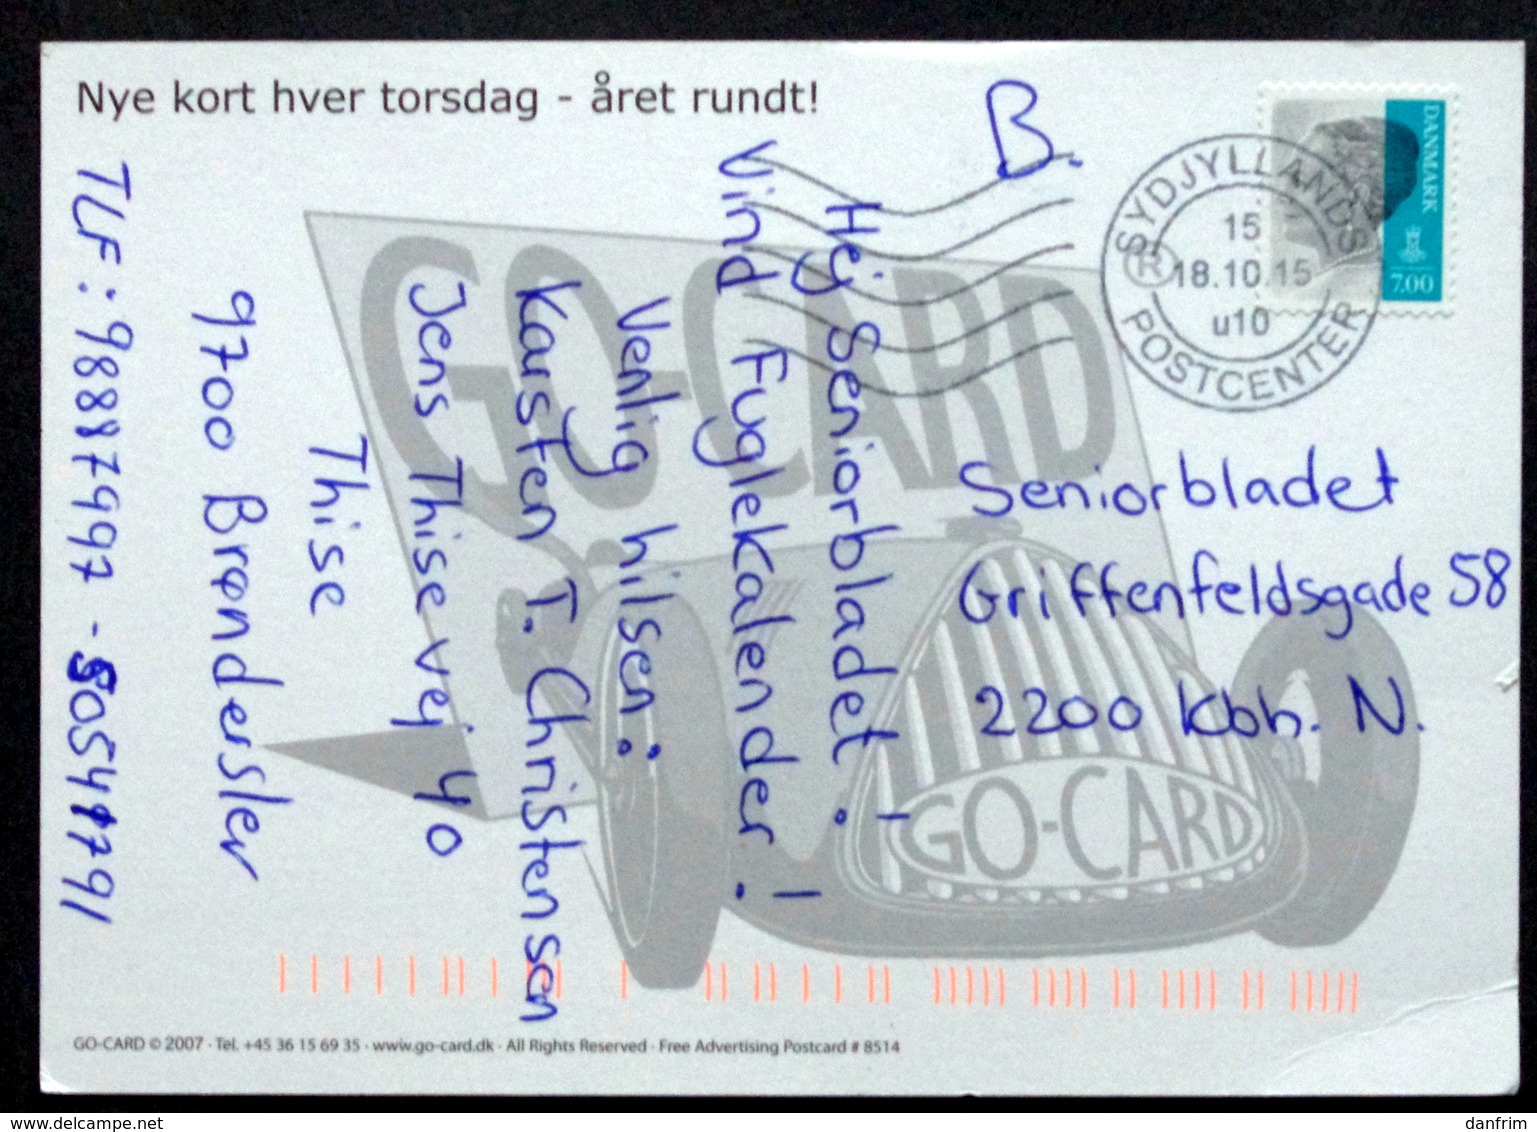 Nye kort hver torsdag - året rundt!
B.
DANMARK
7.00
SYDJYLLANDS
15
18.10.15
u10
POSTCENTER
R
GO-CARD
Hej Seniorbladet !
Vind Fuglekalender !
Venlig hilsen:
Karsten T. Christensen
Jens Thisevej 40
Thise
9700 Brønderslev
TLF: 98887997 - 50541791
Seniorbladet
Griffenfeldsgade 58
2200 Kbh. N.
GO-CARD
GO-CARD © 2007 · Tel. +45 36 15 69 35 · www.go-card.dk · All Rights Reserved · Free Advertising Postcard # 8514
www.delcampe.net
danfrim